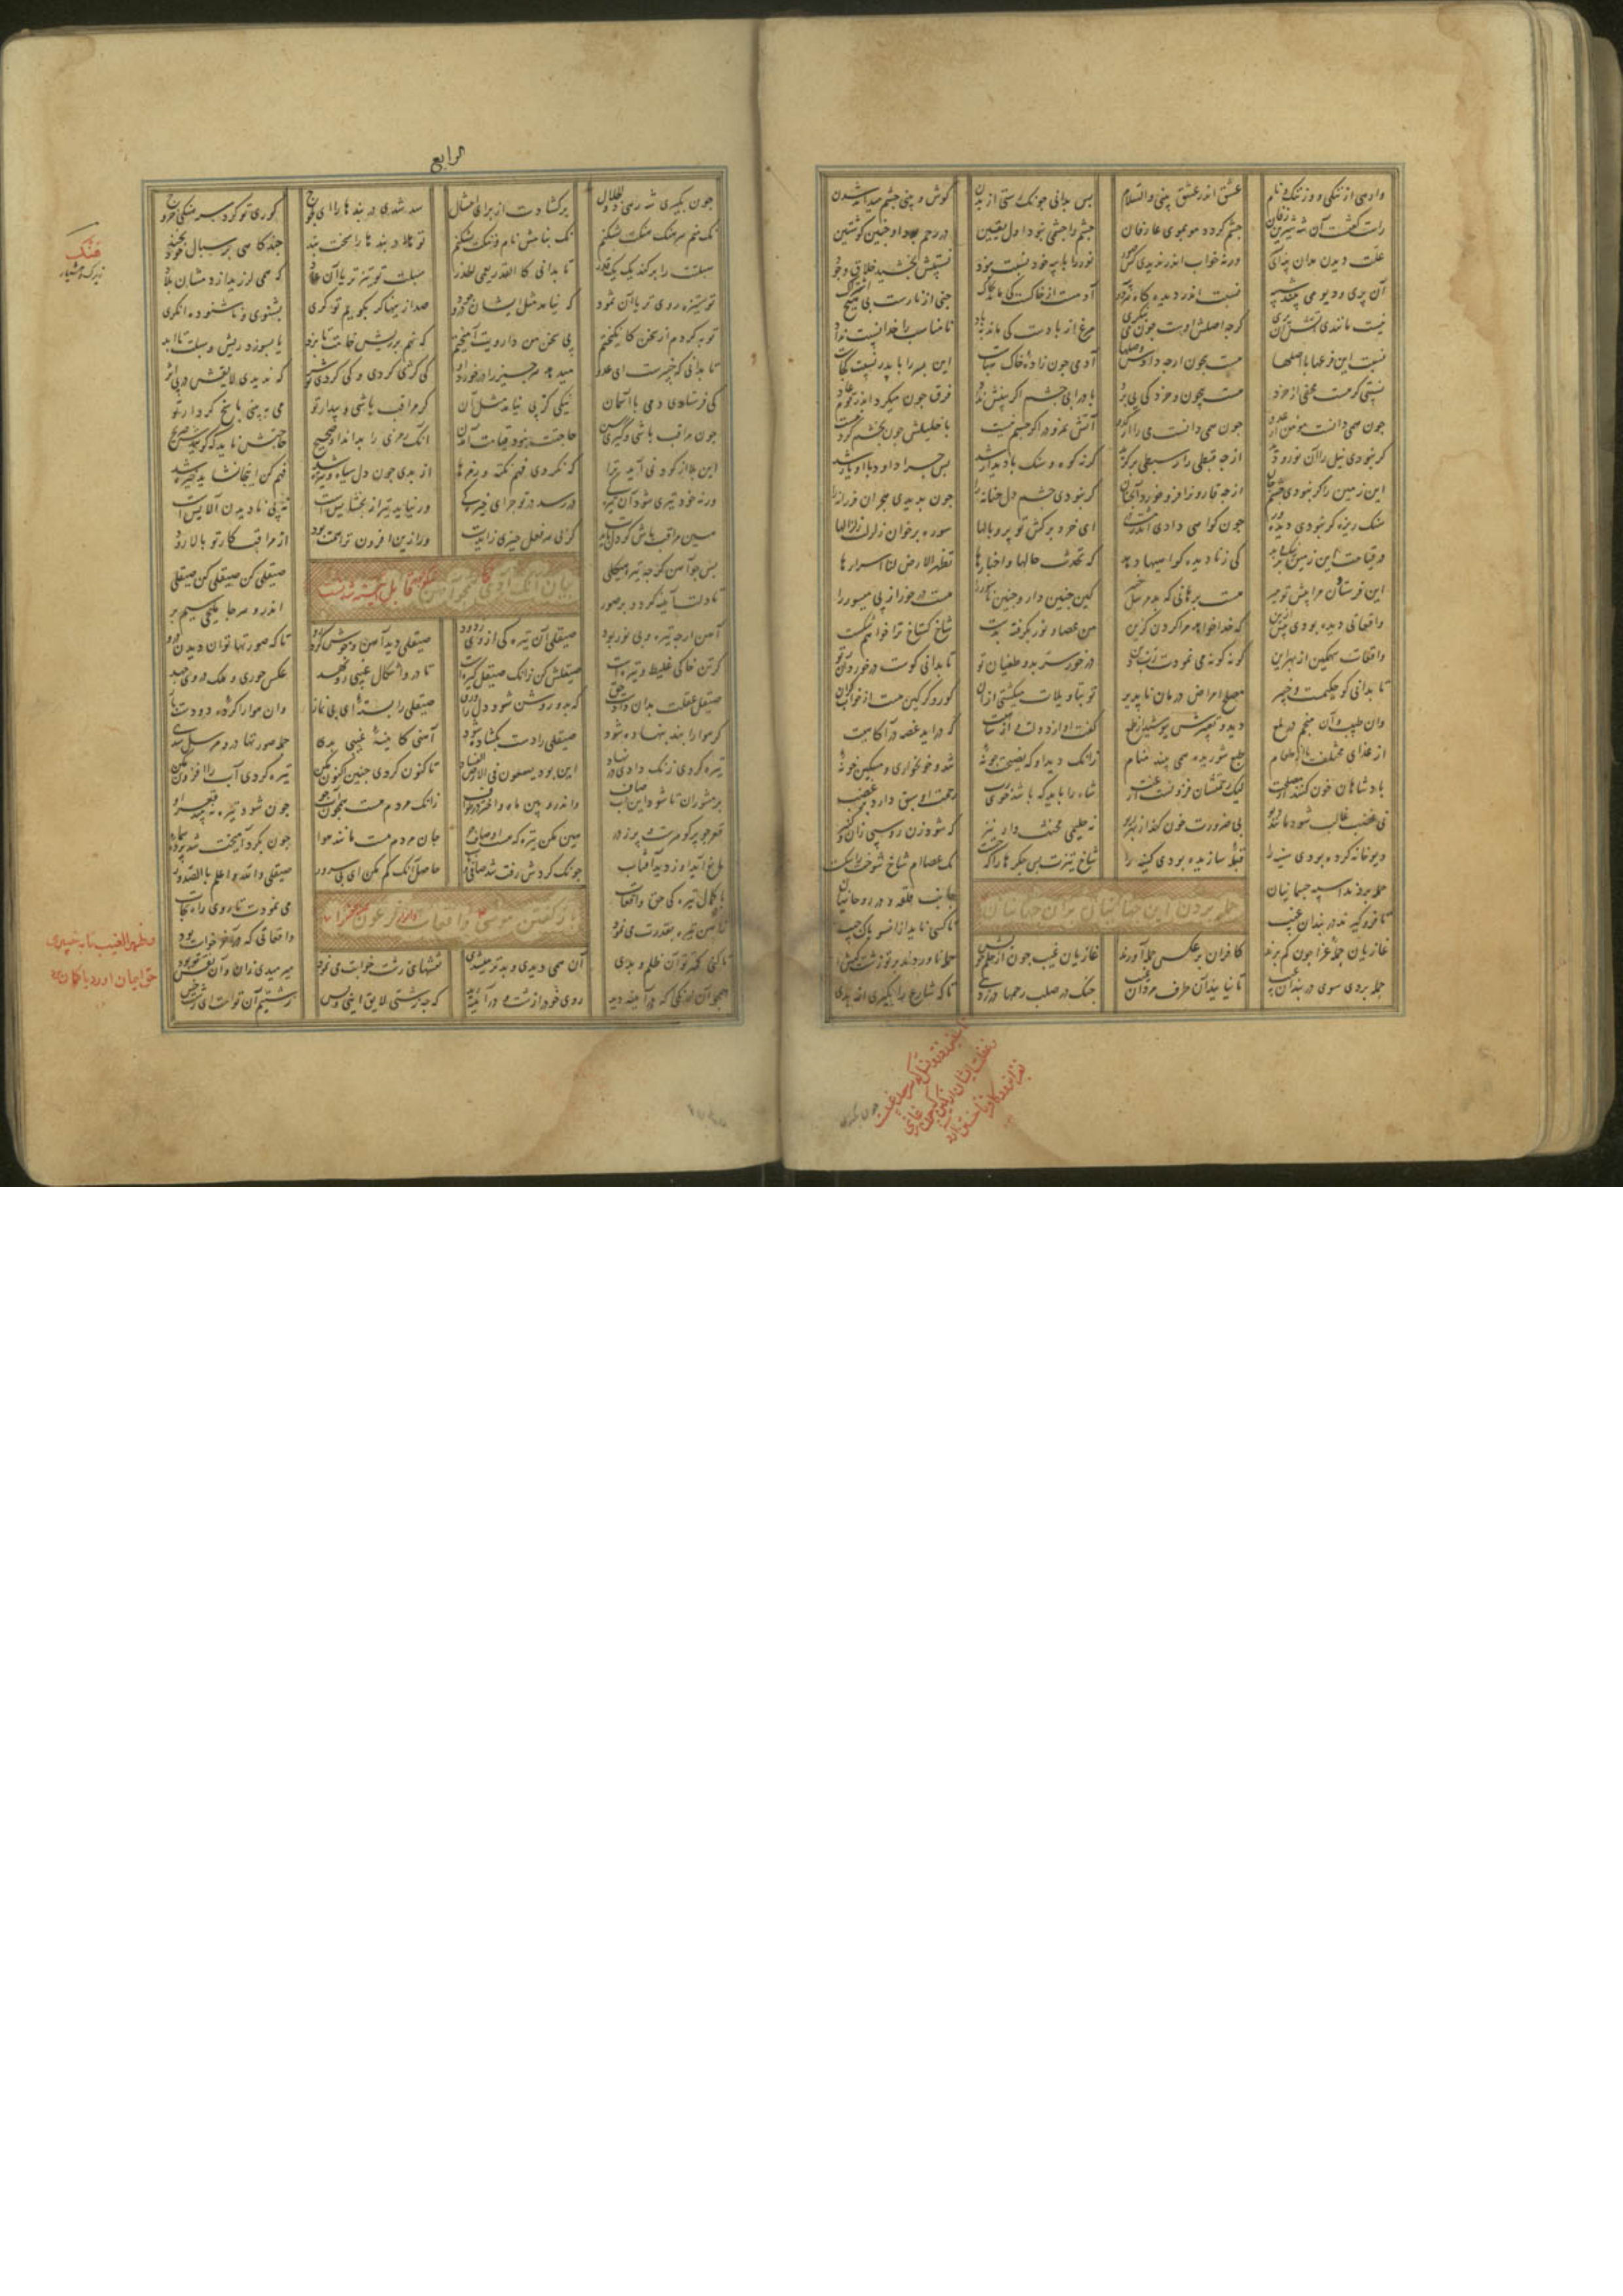 وارهی از تنکی و وز ننک و نام عشق اندر عشق بینی والسلام بس بدانی چونک رستی از بدن کوش و بینی چشم میداند شدن
راست کفتست آن شه شیرین زفان چشم کردد مو بموی عارفان چشم را چشمی نبود اول یقین در رحم بود او جنین کوشتین
علت دیدن مدان پیه ای ورنه خواب اندر ندیدی کس نور را با پیه خود نسبت نبود نسبتش بخشید خلاق ودود
آن پری و دیو می بیند شبیه نسبت اندر دیده کاه هر دو آدمست از خاک کی ماند بخاک جنی از نارست بی هیچ اشتراک
نیست مانندی آتش آن پری کرچه اصلش اوست چون می بنکری مرغ از بادست کی ماند بباد نامناسب را خدا نسبت بداد
نسبت این فرعها با اصلها هست بیچون ارچه دادش وصلها آدمی چون زاده خاک هباست این پسر را با پدر نسبت کجاست
نسبتی کر هست مخفی از خرد هست بیچون و خرد کی پی برد باد را بی چشم اکر بینش نداد فرق چون میکرد اندر قوم عاد
چون همی دانست مومن از عدو چون همی دانست می را از کدو آتش نمرود را کر چشم نیست با خلیلش چون تجشم کردنیست
کر نبودی نیل را آن نور و دید از چه قبطی را ز سبطی برکزید کرنه کوه و سنک با دیدار شد بس چرا داود را او یار شد
این زمین را کر نبودی چشم جان از چه قارون را فرو خورد آنچنان کر نبودی چشم دل حنانه را چون بدیدی هجر آن فرزانه را
سنک ریزه کر نبودی دیده ور چون کواهی دادی اندر مشت در ای خرد برکش تو پر و بالها سوره برخوان زلزلت زلزالها
در قیامت این زمین بر نیک و بد کی ز نادیده کواهیها دهد که تحدث حالها و اخبارها تظهر الارض لنا اسرارها
این فرستادن مرا پیش تو میر هست برهانی که بد مرسل خبیر کین چنین دارو چنین ناسور را هست درخور از پی میسور را
واقعاتی دیده بودی پیش ازین که خدا خواهد مرا کردن کزین من عصا و نور بکرفته بدست شاخ کستاخ ترا خواهم شکست
واقعات سهمکین از بهر این کونه کونه می نمودت رب دین در خور سر بد و طغیان تو تا بدانی کوست درخوردان تو
تا بدانی کو حکیمست و خبیر مصلح امراض درمان ناپذیر تو بتاویلات میکشتی ازان کور و کر کین هست از خواب کران
وان طبیب و آن منجم در لمع دید و تعبیرش بپوشید از طمع کفت دور از دولت و از شاهیت که درآید غصه در آکاهیت
از غذای مختلف یا از طعام طبع شوریده همی بیند منام زانک دید او که نصیحت جو نه تند و خونخواری و مسکین خو نه
پادشاهان خون کنند از مصلحت لیک رحمتشان فزونست از عنت شاه را باید که باشد خوی رب رحمت او سبق دارد بر غضب
نی غضب غالب شود مانند دیو بی ضرورت خون کند از بهر ریو نه حلیمی مخنث وار نیز که شود زن روسپی زان و کنیز
دیو خانه کرده بودی سینه را قبله سازیده بودی کینه را شاخ تیزت بس جکرها را که خست نک عصاام شاخ شوخت را شکست
حمله بردن این جهانیان بران جهانیان
حمله بردند اسپه جسمانیان جانب قلعه و دز روحانیان
تا فرو کیرند بر دربندان غیب تا کسی ناید ازان سو پاک جیب
غازیان حمله غزا چون کم برند کافران برعکس حمله آورند غازیان غیب چون از حلم خویش حمله ناوردند بر تو زشت کیش
حمله بردی سوی دربندان غیب تا نیایند آن طرف مردان غیب چنک در صلب و رحمها در زدی تا که شارع را بکیری از بدی
چون بکیری
الرابع
چون بکیری شه رهی که ذوالجلال برکشادست از برای انتسال سد شدی دربندها را ای لجوج کوری تو کرد سرهنکی خروج
نک منم سرهنک هنکت بشکنم نک بنامش نام و ننکت بشکنم تو هلا دربندها را سخت بند چند کاهی بر سبال خود بخند
سبلتت را برکند یک یک قدر تا بدانی کالقدر یعمی الحذر سبلت تو تیزتر یا آن عاد که همی لرزید از دمشان بلاد
تو ستیزه روی تر یا آن ثمود که نیامد مثل ایشان در وجود صد ازینها کر بکویم تو کری بشنوی و ناشنوده آوری
توبه کردم از سخن کانکیختم بی سخن من دارویت آمیختم که نهم بر ریش خامت تا پزد یا بسوزد ریش و سبلت تا ابد
تا بدانی که خبیرست ای عدو میدهد هر چیز را درخورد او کی کژی کردی و کی کردی تو شر که ندیدی لایقش در پی اثر
کی فرستادی دمی با آسمان نیکی کز پی نیامد مثل آن کر مراقب باشی و بیدار تو می ببینی پاسخ کردار تو
چون مراقب باشی و کیری رسن حاجتت نبود قیامت آمدن آنک رمزی را بداند او صحیح حاجتش ناید که کویندش صریح
این بلا از کودنی آید ترا که نکردی فهم نکته و رمزها از بدی چون دل سیاه و تیره شد فهم کن اینجا نشاید خیره شد
ورنه خود تیری شود آن تیرکی در رسد در تو جزای خیرکی ور نیاید تیر از بخشایش است نه پی نادیدن آلایش است
هین مراقب باش کر دل بایدت کز پی هر فعل چیزی زایدت ور ازین افزون ترا همت بود از مراقب کار تو بالا رود
بیان آنک تن آدمی همچو آهن نیکو جوهر قابل آینه شدنست
پس چو آهن کرچه تیره هیکلی صیقلی کن صیقلی کن صیقلی
تا دلت آینه کردد پر صور اندرو هر جا ملیحی سیم بر
آهن ارچه تیره و بی نور بود صیقلی آن تیرکی از وی زدود صیقلی دید آهن و خوش کرد رو تا که صورتها توان دیدن درو
کر تن خاکی غلیظ و تیره است صیقلش کن زانک صیقل کیره است تا درو اشکال غیبی رو دهد عکس حوری و ملک در وی جهد
صیقل عقلت بدان دادست حق که بدو روشن شود دل را ورق صیقلی را بسته ای بی نماز وان هوا را کرده دو دست باز
کر هوا را بند بنهاده شود صیقلی را دست بکشاده شود آهنی کاینه غیبی بدی جمله صورتها درو مرسل شدی
تیره کردی زنک دادی در نهاد این بود یسعون فی الارض الفساد تاکنون کردی چنین اکنون مکن تیره کردی آب را افزون مکن
بر مشوران تا شود این آب صاف واندرو بین ماه و اختر در طواف زانک مردم هست همچون آب جو چون شود تیره نبینی قعر او
قعر جو پر کوهرست و پر ز در هین مکن تیره که هست او صاف جان مردم هست مانند هوا چون بکرد آمیخت شد پرده سما
مانع آید او ز دید آفتاب چونک کردش رفت شد صافی و ناب حاصل آنک کم مکن ای بی سرور صیقلی والله اعلم بالصدور
باز کفتن موسی واقعات فرعون را
با کمال تیرکی حق واقعات می نمودت تا روی راه نجات
ز آهن تیره بقدرت می نمود واقعاتی که در آخر خواست بود
تا کنی کمتر تو آن ظلم و بدی آن همی دیدی و بدتر میشدی نقشهای زشت خوابت می نمود می رمیدی زان و آن نقش تو بود
همچو آن زنکی که در آینه دید روی خود را زشت و بر آینه رید که چه زشتی لایق اینی و بس زشتیم آن توست ای کور خس
هنک